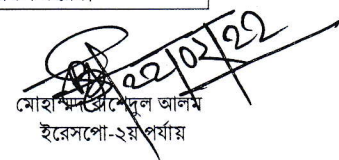 ২২|০২|২২
মোহাম্মদ রাশেদুল আলম
ইরেসপো-২য় পর্যায়